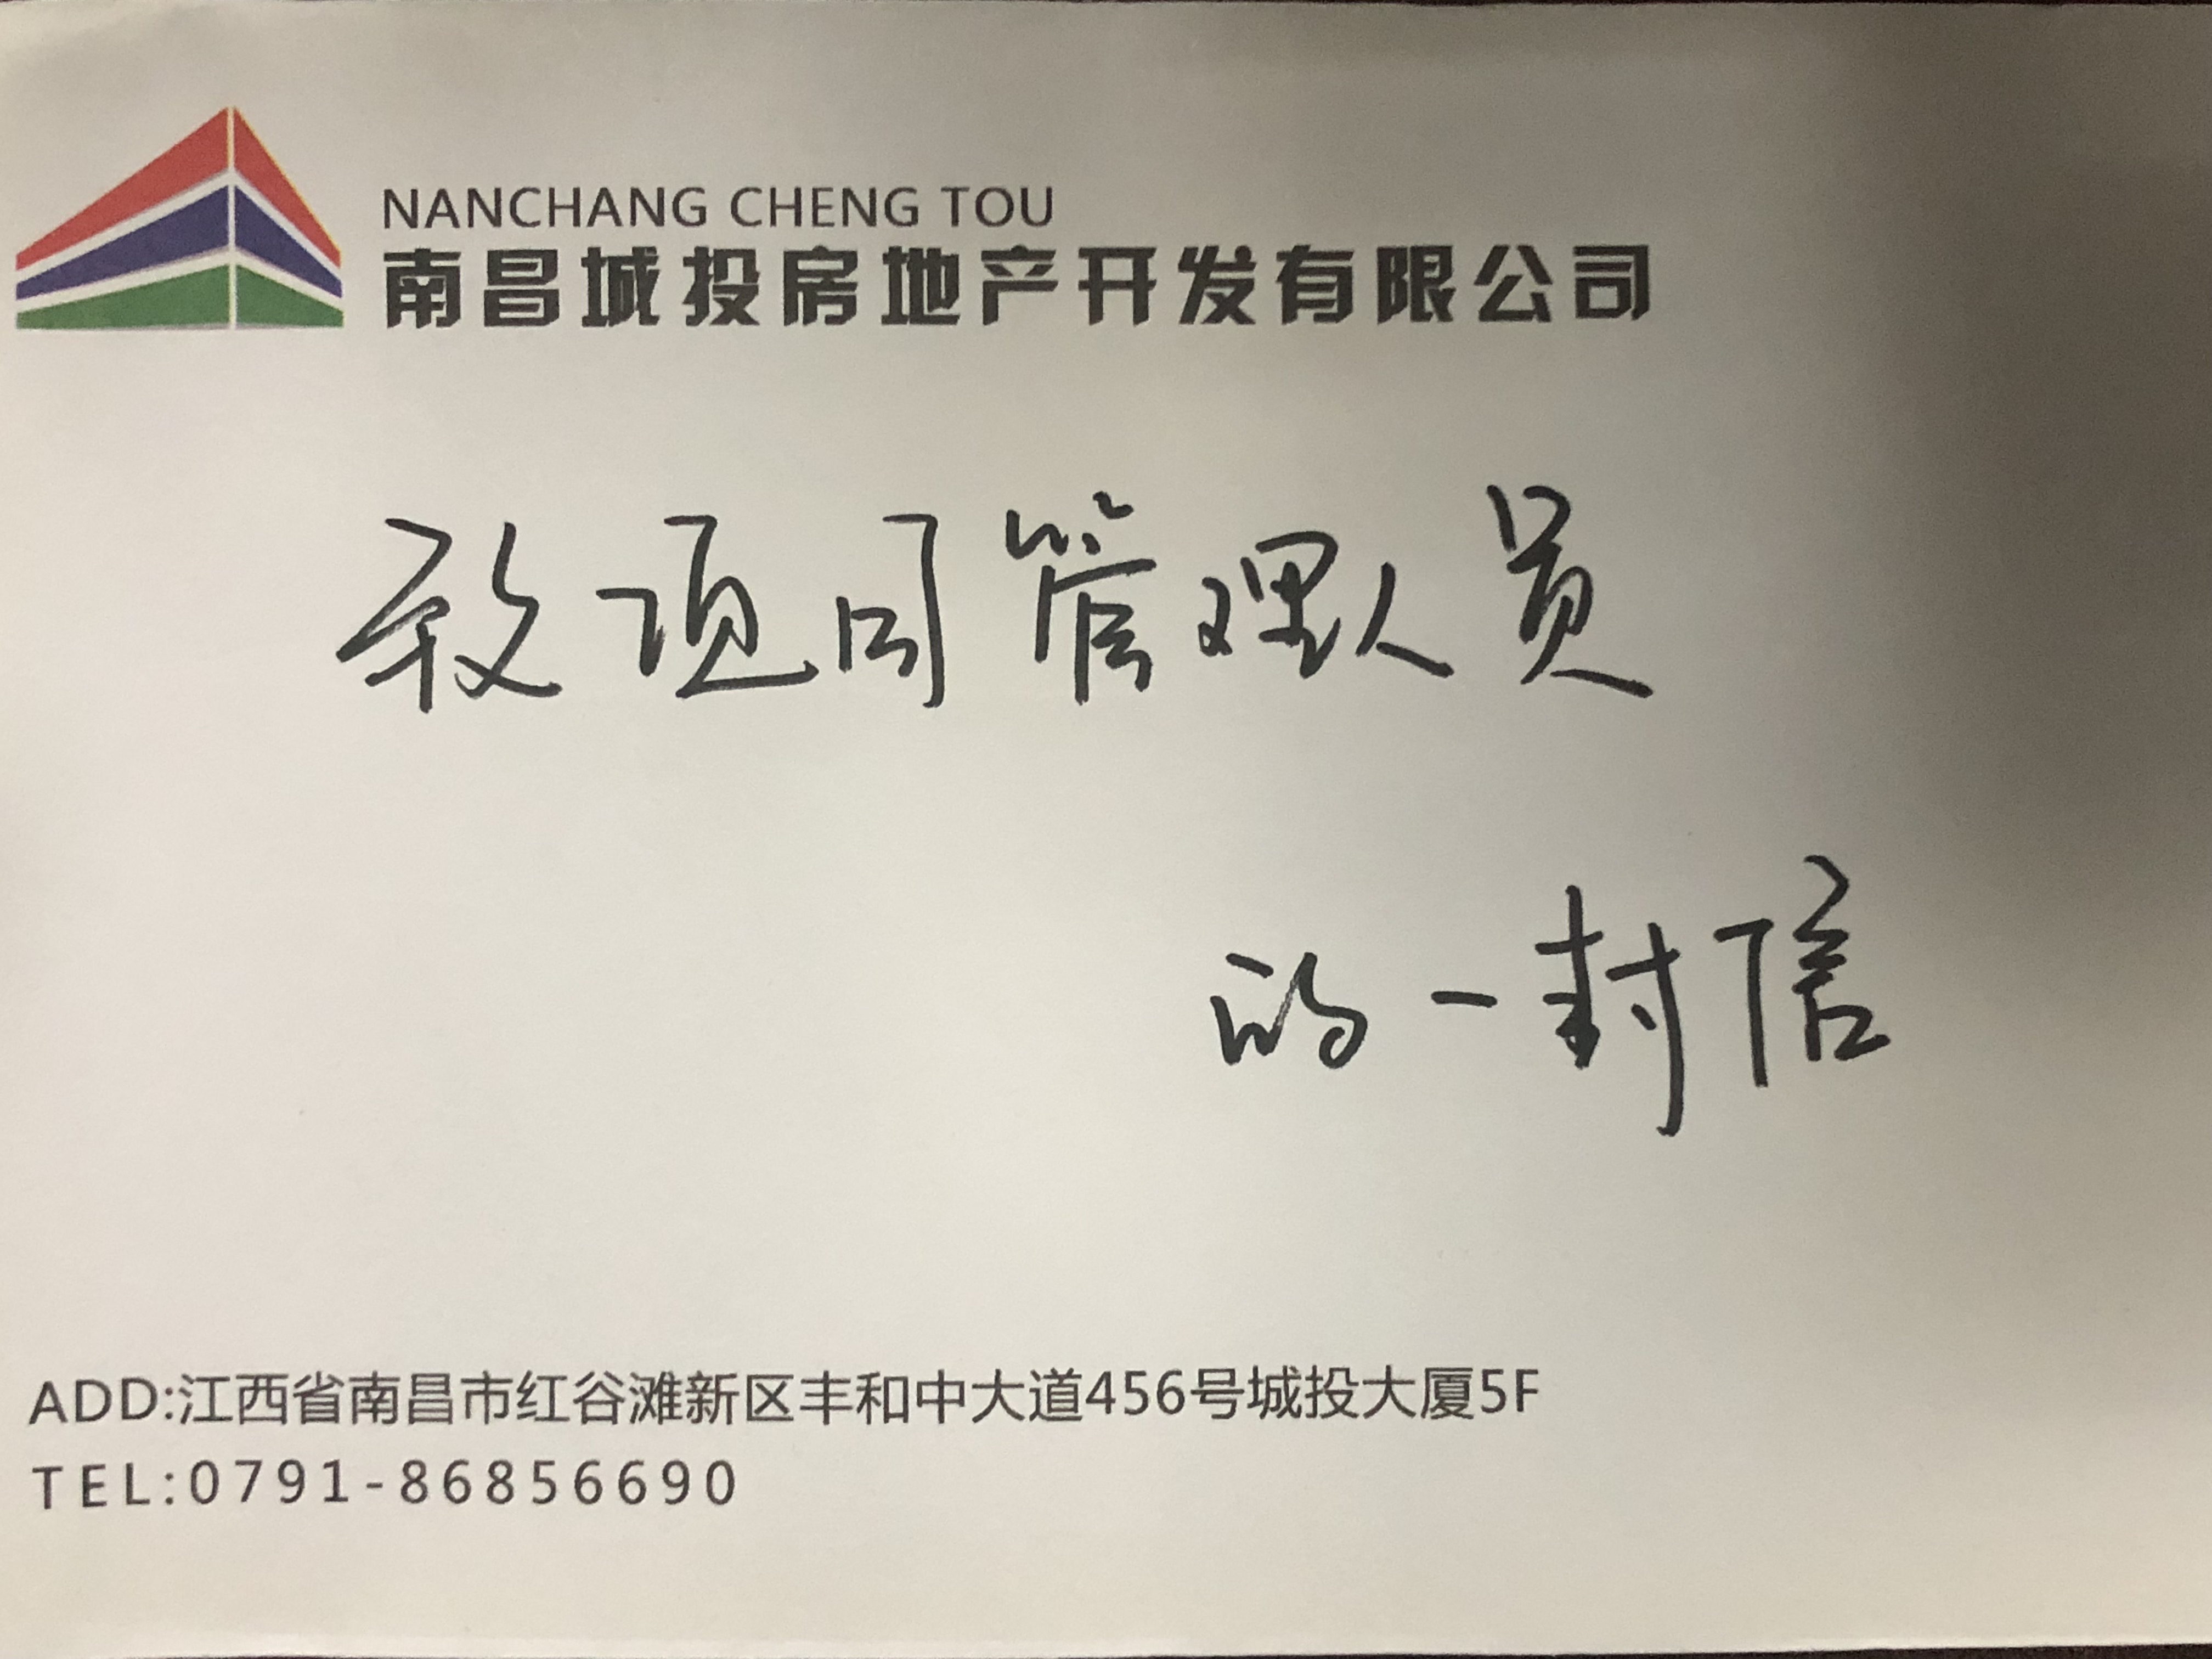 NANCHANG CHENG TOU
南昌城投房地产开发有限公司
致项目管理人员
的一封信
ADD:江西省南昌市红谷滩新区丰和中大道456号城投大厦5F
TEL:0791-86856690